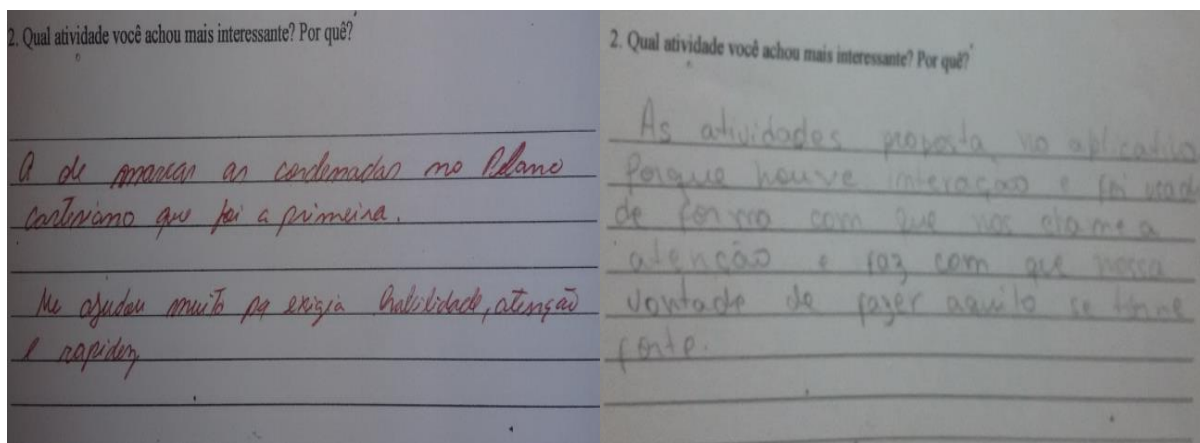 2. Qual atividade você achou mais interessante? Por quê?
A de marcar as cordenadas no Plano
cartesiano que foi a primeira.
Me ajudou muito pq exigia habilidade, atenção
e rapidez
2. Qual atividade você achou mais interessante? Por quê?
As atividades proposta no aplicativo
Porque houve interação e foi usad
de forma com que nos chame a
atenção e faz com que nossa
vontade de fazer aquilo se torne
forte.